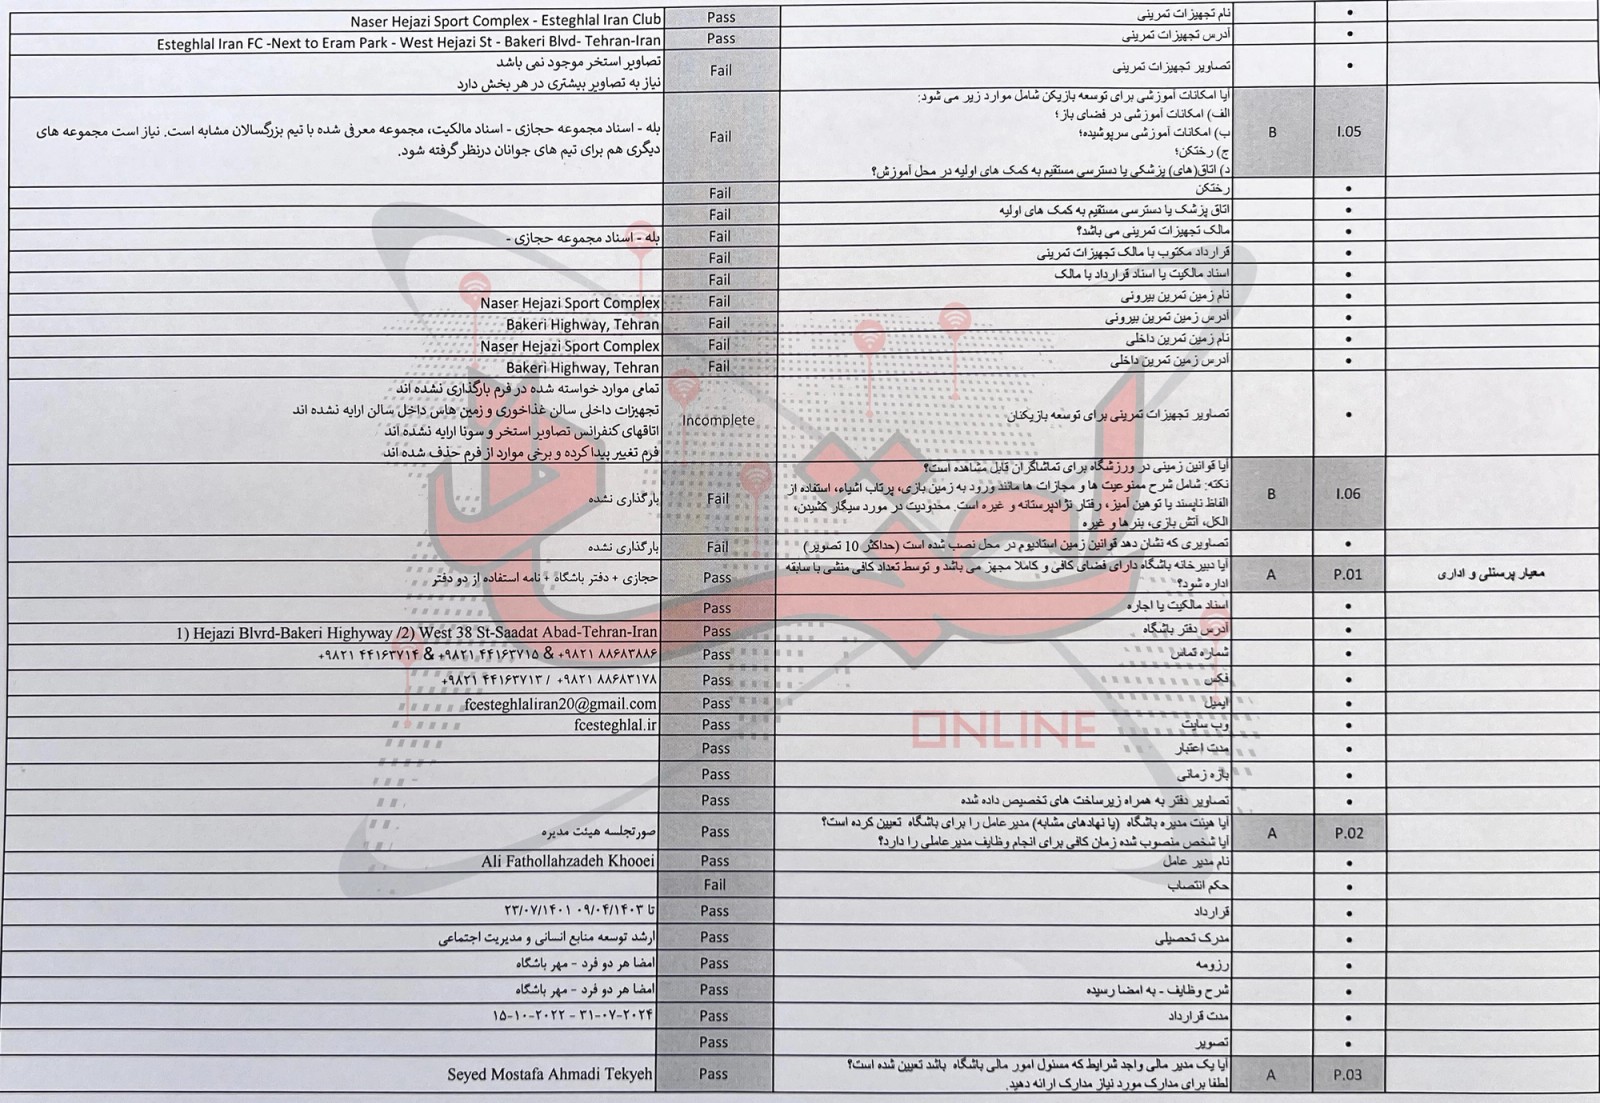 نام تجهیزات تمرینی Pass Naser Hejazi Sport Complex - Esteghlal Iran Club
آدرس تجهیزات تمرینی Pass Esteghlal Iran FC -Next to Eram Park - West Hejazi St - Bakeri Blvd- Tehran-Iran
تصاویر تجهیزات تمرینی Fail تصاویر استخر موجود نمی باشد
نیاز به تصاویر بیشتری در هر بخش دارد
I.05 B آیا امکانات آموزشی برای توسعه بازیکن شامل موارد زیر می شود:
الف) امکانات آموزشی در فضای باز؛
ب) امکانات آموزشی سرپوشیده؛
ج) رختکن؛
د) اتاق(های) پزشکی یا دسترسی مستقیم به کمک های اولیه در محل آموزش؟
Fail بله - اسناد مجموعه حجازی - اسناد مالکیت، مجموعه معرفی شده با تیم بزرگسالان مشابه است. نیاز است مجموعه های
دیگری هم برای تیم های جوانان درنظر گرفته شود.
رختکن Fail
اتاق پزشک یا دسترسی مستقیم به کمک های اولیه Fail
مالک تجهیزات تمرینی می باشد؟ Fail بله - اسناد مجموعه حجازی -
قرارداد مکتوب با مالک تجهیزات تمرینی Fail
اسناد مالکیت یا اسناد قرارداد با مالک Fail
نام زمین تمرین بیرونی Fail Naser Hejazi Sport Complex
آدرس زمین تمرین بیرونی Fail Bakeri Highway, Tehran
نام زمین تمرین داخلی Fail Naser Hejazi Sport Complex
آدرس زمین تمرین داخلی Fail Bakeri Highway, Tehran
تصاویر تجهیزات تمرینی برای توسعه بازیکنان Incomplete تمامی موارد خواسته شده در فرم بارگذاری نشده اند
تجهیزات داخلی سالن غذاخوری و زمین هاس داخل سالن ارایه نشده اند
اتاقهای کنفرانس تصاویر استخر و سونا ارایه نشده اند
فرم تغییر پیدا کرده و برخی موارد از فرم حذف شده اند
I.06 B آیا قوانین زمینی در ورزشگاه برای تماشاگران قابل مشاهده است؟
نکته: شامل شرح ممنوعیت ها و مجازات ها مانند ورود به زمین بازی، پرتاب اشیاء، استفاده از
الفاظ ناپسند یا توهین آمیز، رفتار نژادپرستانه و غیره است. محدودیت در مورد سیگار کشیدن،
الکل، آتش بازی، بنرها و غیره
Fail بارگذاری نشده
تصاویری که نشان دهد قوانین زمین استادیوم در محل نصب شده است (حداکثر 10 تصویر) Fail بارگذاری نشده
معیار پرسنلی و اداری P.01 A آیا دبیرخانه باشگاه دارای فضای کافی و کاملا مجهز می باشد و توسط تعداد کافی منشی با سابقه
اداره شود؟
Pass حجازی + دفتر باشگاه + نامه استفاده از دو دفتر
اسناد مالکیت یا اجاره Pass
آدرس دفتر باشگاه Pass 1) Hejazi Blvrd-Bakeri Highyway /2) West 38 St-Saadat Abad-Tehran-Iran
شماره تماس Pass +۹۸۲۱ ۴۴۱۶۳۷۱۴ & +۹۸۲۱ ۴۴۱۶۳۷۱۵ & +۹۸۲۱ ۸۸۶۸۳۸۸۶
فکس Pass +۹۸۲۱ ۴۴۱۶۳۷۱۳ / +۹۸۲۱ ۸۸۶۸۳۱۷۸
ایمیل Pass fcesteghlaliran20@gmail.com
وب سایت Pass fcesteghlal.ir
مدت اعتبار Pass
بازه زمانی Pass
تصاویر دفتر به همراه زیرساخت های تخصیص داده شده Pass
P.02 A آیا هیئت مدیره باشگاه (یا نهادهای مشابه) مدیرعامل را برای باشگاه تعیین کرده است؟
آیا شخص منصوب شده زمان کافی برای انجام وظایف مدیرعاملی را دارد؟
Pass صورتجلسه هیئت مدیره
نام مدیر عامل Pass Ali Fathollahzadeh Khooei
حکم انتصاب Fail
قرارداد Pass ۲۳/۰۷/۱۴۰۱ تا ۰۹/۰۴/۱۴۰۳
مدرک تحصیلی Pass ارشد توسعه منابع انسانی و مدیریت اجتماعی
رزومه Pass امضا هر دو فرد - مهر باشگاه
شرح وظایف - به امضا رسیده Pass امضا هر دو فرد - مهر باشگاه
مدت قرارداد Pass ۱۵-۱۰-۲۰۲۲ - ۳۱-۰۷-۲۰۲۴
تصویر Pass
P.03 A آیا یک مدیر مالی واجد شرایط که مسئول امور مالی باشگاه باشد تعیین شده است؟
لطفا برای مدارک مورد نیاز مدارک ارائه دهید.
Pass Seyed Mostafa Ahmadi Tekyeh
ONLINE